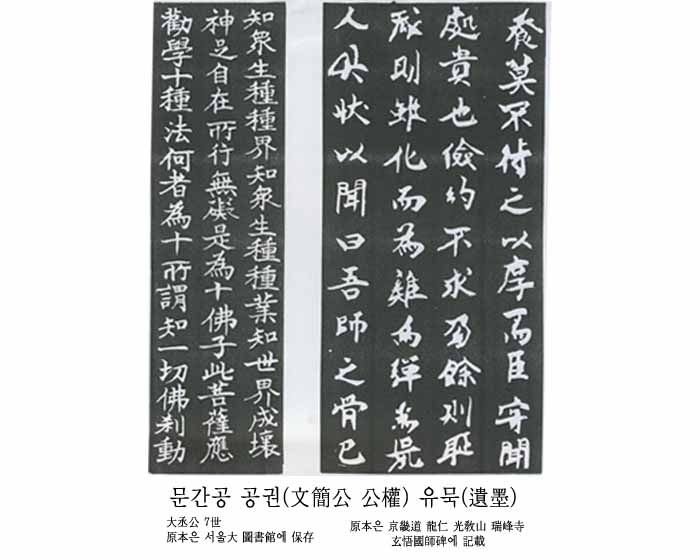 莫不待之以厚焉臣聞
處貴也儉約不求餘則耻
則雖化而為雞為彈
人具狀以聞曰吾師之骨已
知衆生種種界知衆生種種業知世界成壞
神足自在所行無礙是為十佛子此菩薩應
勸學十種法何者為十所謂知一切佛刹動
문간공 공권(文簡公 公權) 유묵(遺墨)
大丞公 7世
原本은 서울大 圖書館에 保存
原本은 京畿道 龍仁 光敎山 瑞峰寺
玄悟國師碑에 記載